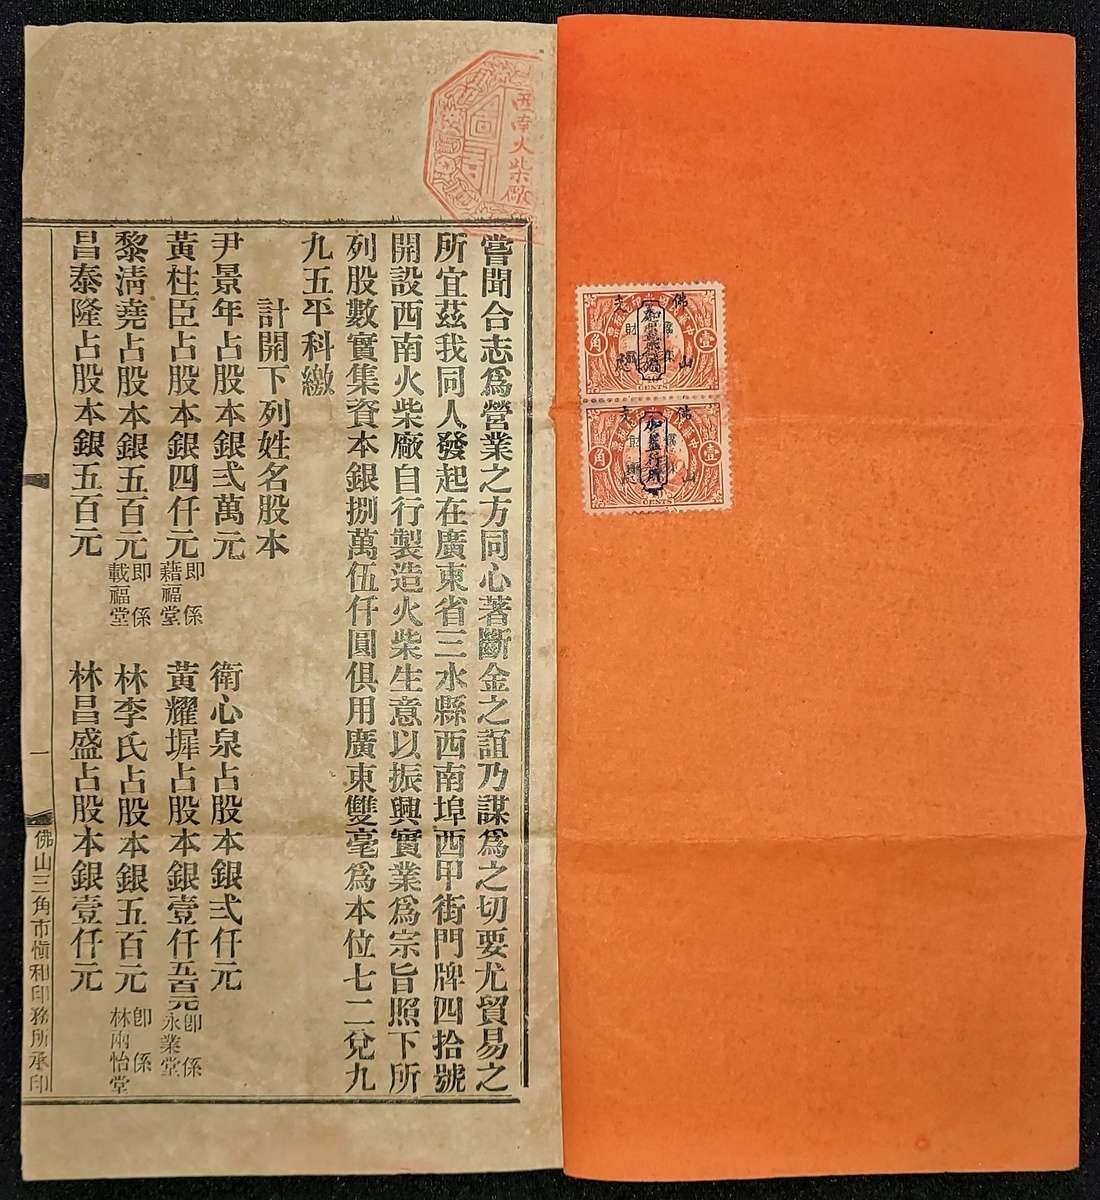 嘗聞合志爲營業之方同心著斷金之誼乃謀爲之切要尤貿易之
所宜茲我同人發起在廣東省三水縣西南埠西甲街門牌四拾號
開設西南火柴廠自行製造火柴生意以振興實業爲宗旨照下所
列股數實集資本銀捌萬伍仟圓俱用廣東雙毫爲本位七二兌九
九五平科繳
計開下列姓名股本
尹景年占股本銀弍萬元
衛心泉占股本銀弍仟元
黃柱臣占股本銀四仟元即係藉福堂
黃耀墀占股本銀壹仟五百元卽係永業堂
黎淸堯占股本銀五百元即係載福堂
林李氏占股本銀五百元卽係林兩怡堂
昌泰隆占股本銀五百元
林昌盛占股本銀壹仟元
一
佛山三角市愼和印務所承印
西南火柴廠
壹
角
CENTS
佛山
壹
角
CENTS
佛山